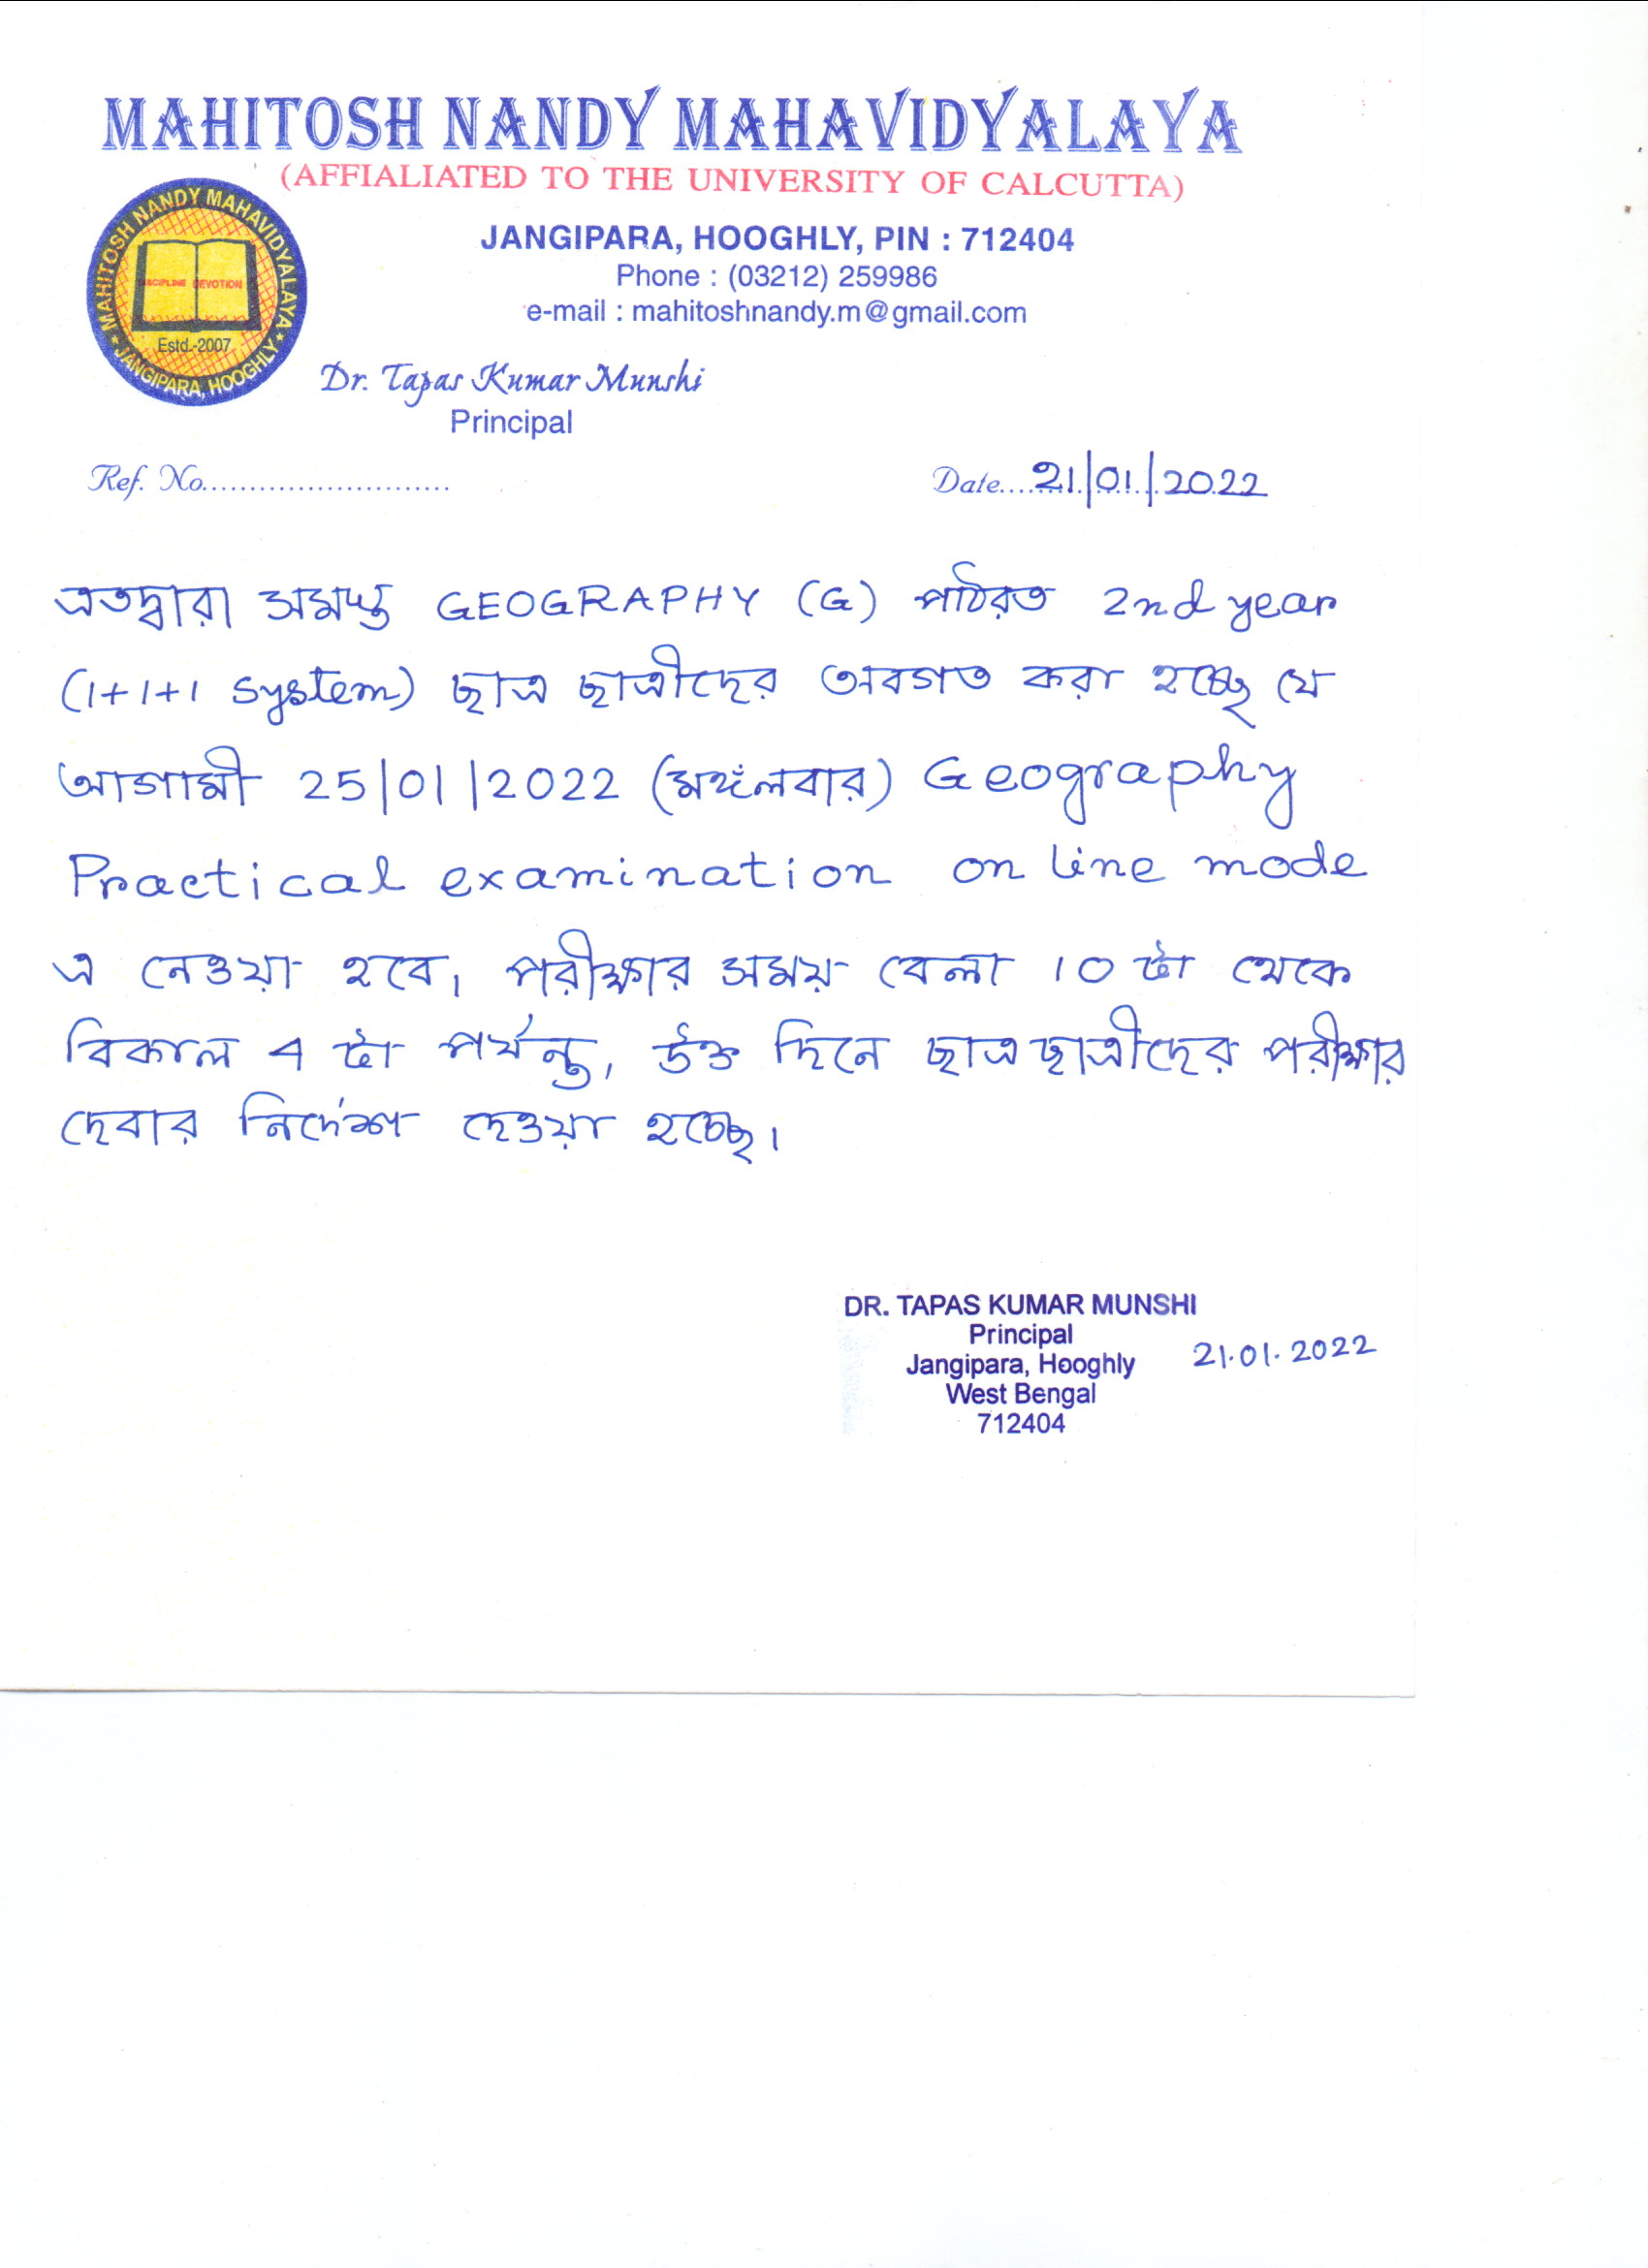 MAHITOSH NANDY MAHAVIDYALAYA
(AFFIALIATED TO THE UNIVERSITY OF CALCUTTA)
MAHITOSH NANDY MAHAVIDYALAYA
DISCIPLINE DEVOTION
Estd.-2007
JANGIPARA, HOOGHLY
JANGIPARA, HOOGHLY, PIN : 712404
Phone : (03212) 259986
e-mail : mahitoshnandy.m@gmail.com
Dr. Tapas Kumar Munshi
Principal
Ref. No..........................
Date....21/01/2022
এতদ্বারা সমস্ত GEOGRAPHY (G) পাঠরত 2nd year
(1+1+1 system) ছাত্র ছাত্রীদের অবগত করা হচ্ছে যে
আগামী 25/01/2022 (মঙ্গলবার) Geography
Practical examination on line mode
এ নেওয়া হবে। পরীক্ষার সময় বেলা 10 টা থেকে
বিকাল 4 টা পর্যন্ত। উক্ত দিনে ছাত্রছাত্রীদের পরীক্ষার
দেবার নির্দেশ দেওয়া হচ্ছে।
DR. TAPAS KUMAR MUNSHI
Principal
Jangipara, Hooghly
21.01.2022
West Bengal
712404